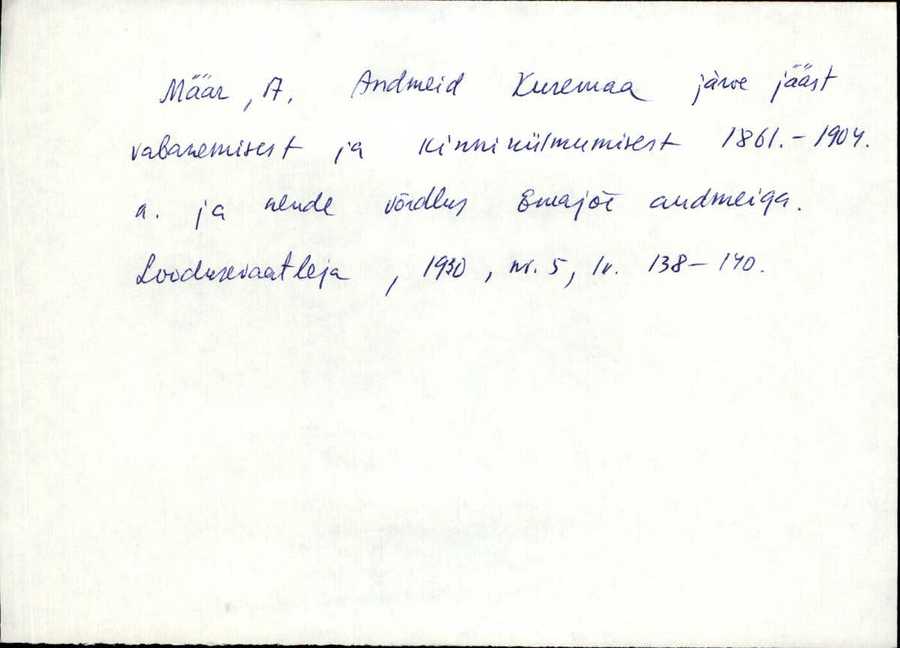 Määr, A. Andmeid Kuremaa järve jääst
vabanemisest ja kinnikülmumisest 1861.-1904.
a. ja nende võrdlus Emajõe andmeiga.
Loodusevaatleja, 1930, nr. 5, lv. 138-140.